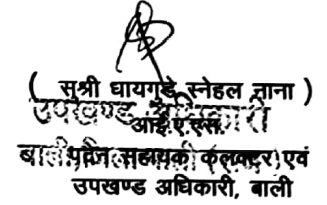 ( सुश्री घायगुडे स्नेहल नाना )
उपखण्ड अधिकारी
आई.ए.एस.
बाली पदेन सहायक कलक्टर एवं
उपखण्ड अधिकारी, बाली